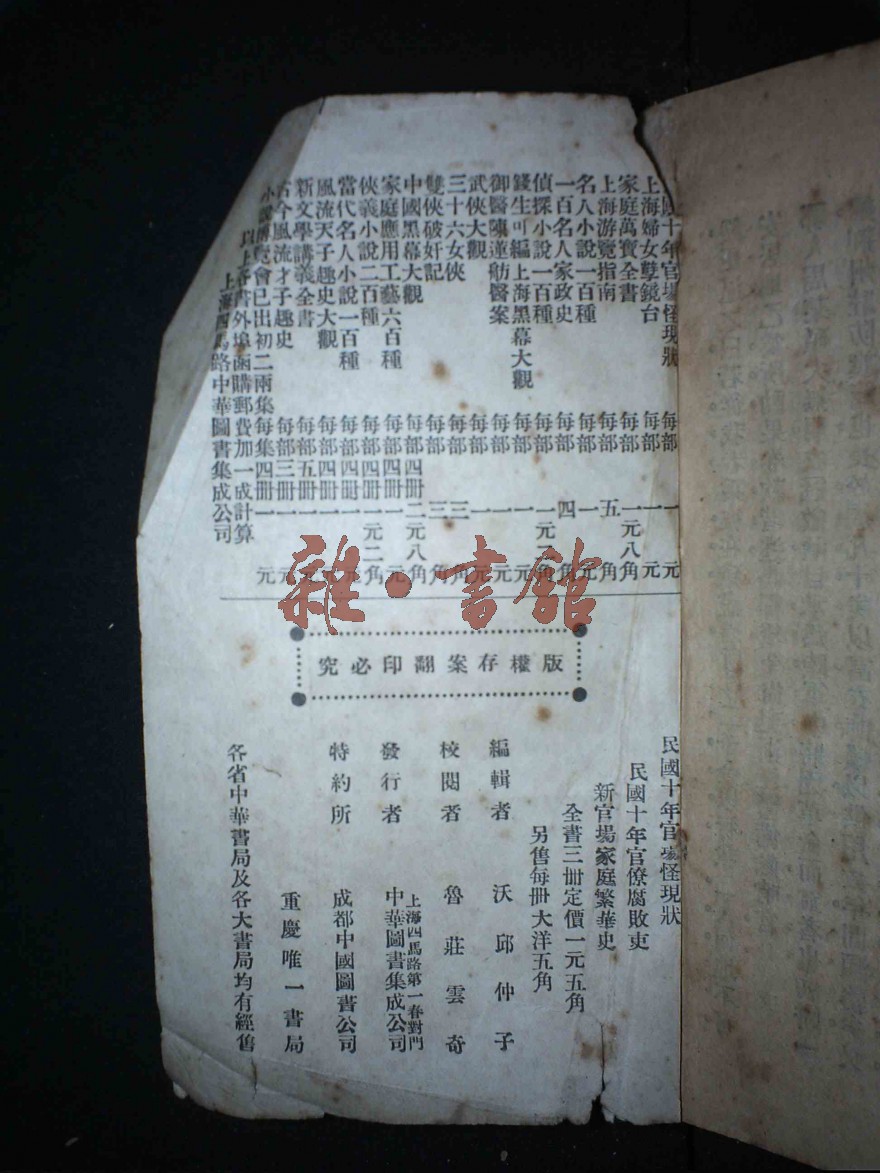 國十年官場怪現狀 每部 一元
上海婦女孽鏡台 每部 一元
家庭萬寶全書 每部 一元八角
上海游覽指南 每部 五角
名人小說一百種 每部 一元
一百名人家政史 每部 四
偵探小說一百種 每部 一元 角
錢生可編上海黑幕大觀 每部 一元
御醫陳蓮舫醫案 每部 一元
武俠大觀 每部 一元
三十六女俠 每部 三角
雙俠破奸記 每部 三角
中國黑幕大觀 每部四冊 二元八角
家庭應用工藝六百種 每部四冊 一元
俠義小說二百種 每部四冊 一元二角
當代名人小說一百種 每部四冊 一元
風流天子趣史大觀 每部四冊 一元
新文學講義全書 每部五冊 一元
古今風流才子趣史 每部三冊 一元
覽會已出初二兩集 每集四冊 一元
以上各書外埠函購郵費加一成計算
上海四馬路中華圖書集成公司
版權存案翻印必究
民國十年官場怪現狀
民國十年官僚腐敗史
新官場家庭繁華史
全書三冊定價一元五角
另售每冊大洋五角
編輯者 沃邱仲子
校閱者 魯莊雲奇
發行者 上海四馬路第一春對門
中華圖書集成公司
特約所 成都中國圖書公司
重慶唯一書局
各省中華書局及各大書局均有經售
雜·書館